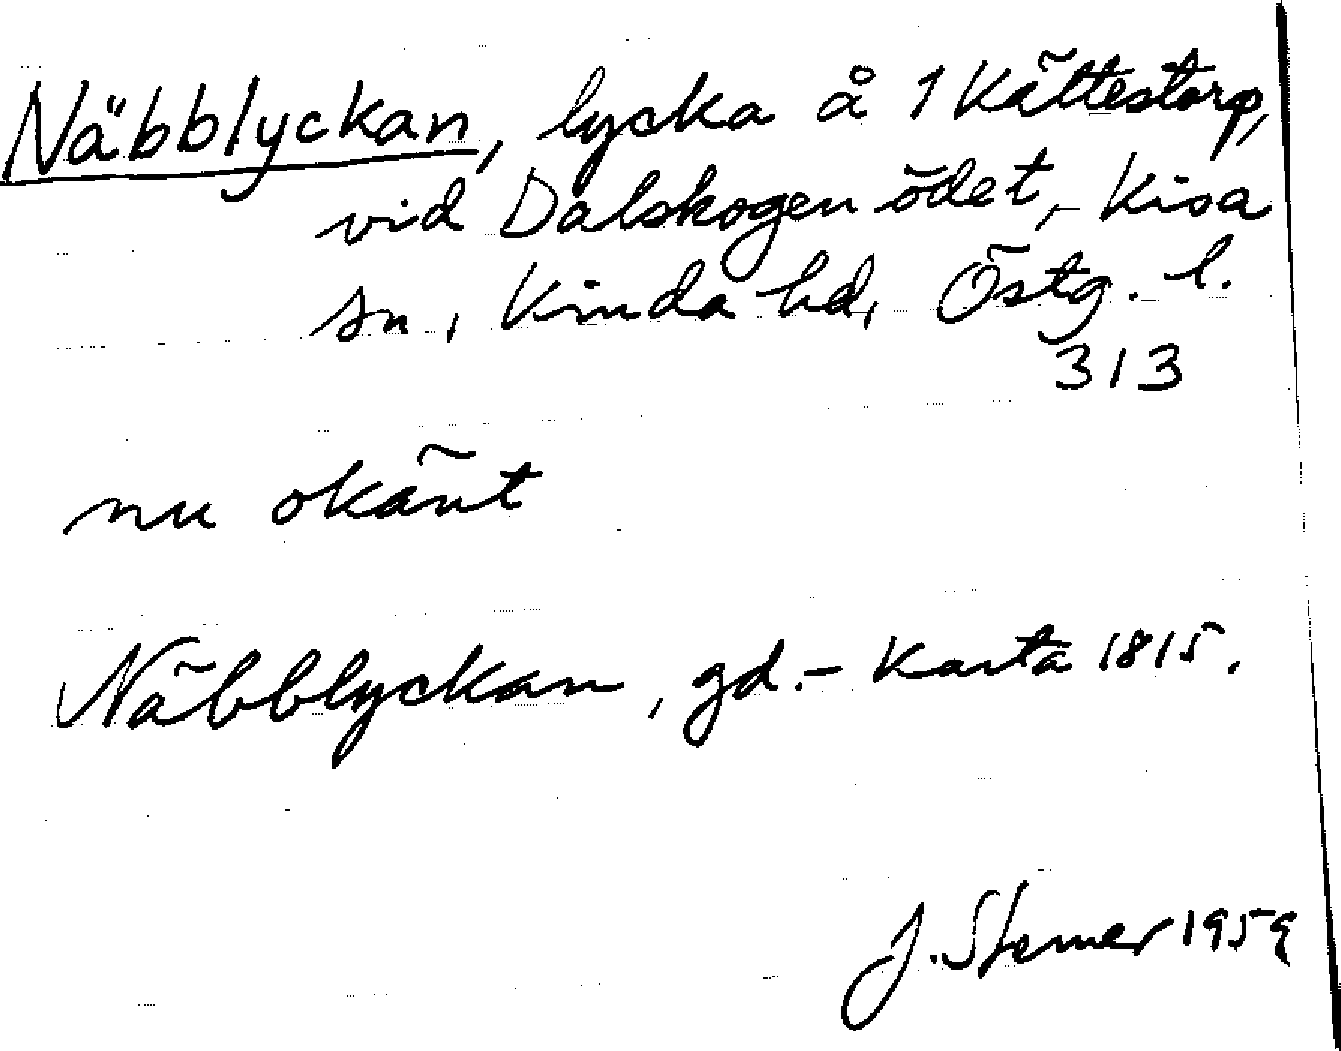 Näbblyckan, lycka å 1 Kättestorp,
vid Dalskogen ödet, Kisa
sn, Kinda hd, Östg. l.
313
nu okänt
Näbblyckan, gd. - Karta 1815.
J. Sterner 1959